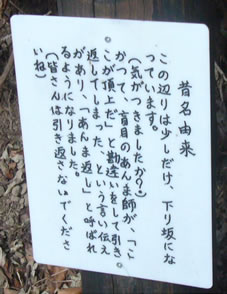 昔名由来
この辺りは少しだけ、下り坂にな
っています。
（気がつきましたか？）
かつて、盲目のあんま師が、「こ
こが頂上だ」と勘違いをして引き
返してしまった、という言い伝え
があり、「あんま返し」と呼ばれ
るようになりました。
（皆さんは引き返さないでくださ
いね）